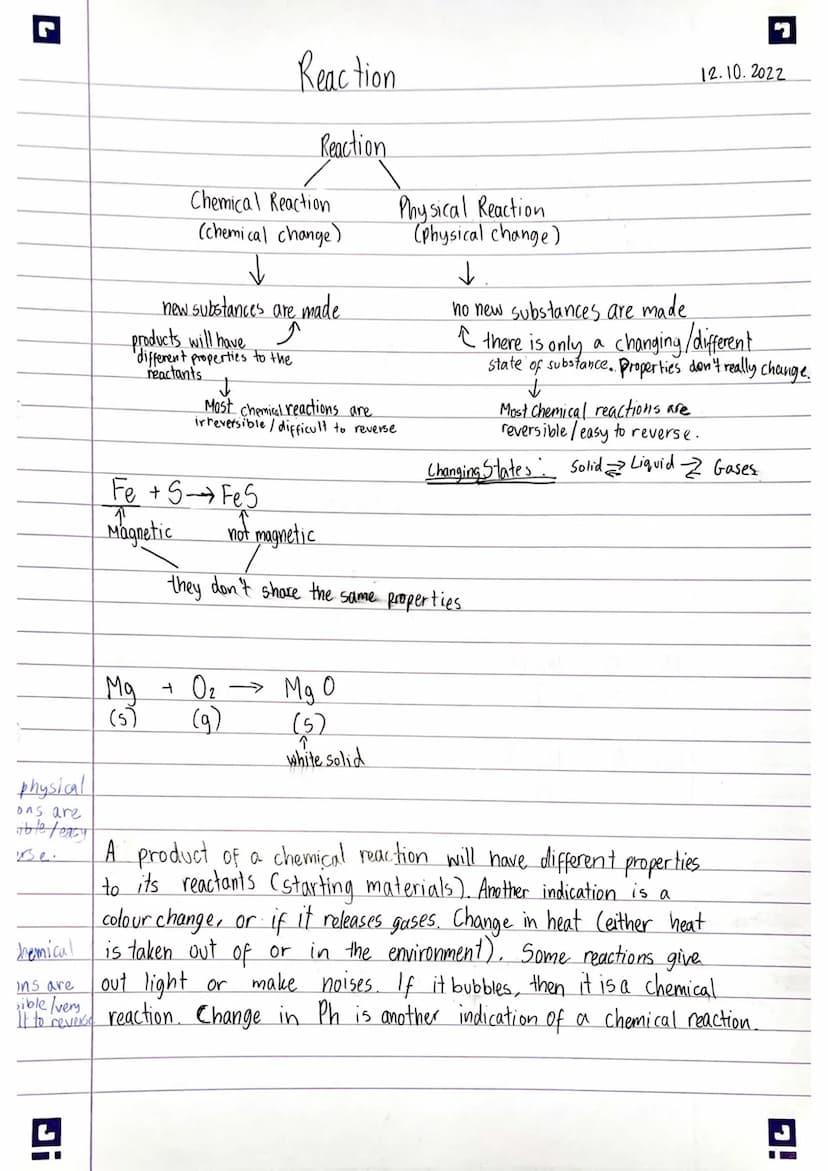 Reaction
12.10.2022
Reaction
Chemical Reaction
(chemical change)
Physical Reaction
(Physical change)
new substances are made
products will have
different properties to the
reactants
Most chemical reactions are
irreversible/difficult to reverse
no new substances are made
there is only a changing/different
state of substance. Properties don't really change.
Most Chemical reactions are
reversible/easy to reverse.
Changing States: Solid ⇄ Liquid ⇄ Gases
Fe + S → FeS
Magnetic not magnetic
they don't share the same properties
Mg + O₂ → MgO
(s) (g) (s)
white solid
physical
ons are
ible/easy
rse.
A product of a chemical reaction will have different properties
to its reactants (starting materials). Another indication is a
colour change, or if it releases gases. Change in heat (either heat
is taken out of or in the environment). Some reactions give
out light or make noises. If it bubbles, then it is a chemical
reaction. Change in Ph is another indication of a chemical reaction.
hemical
ons are
sible/very
lt to reverse